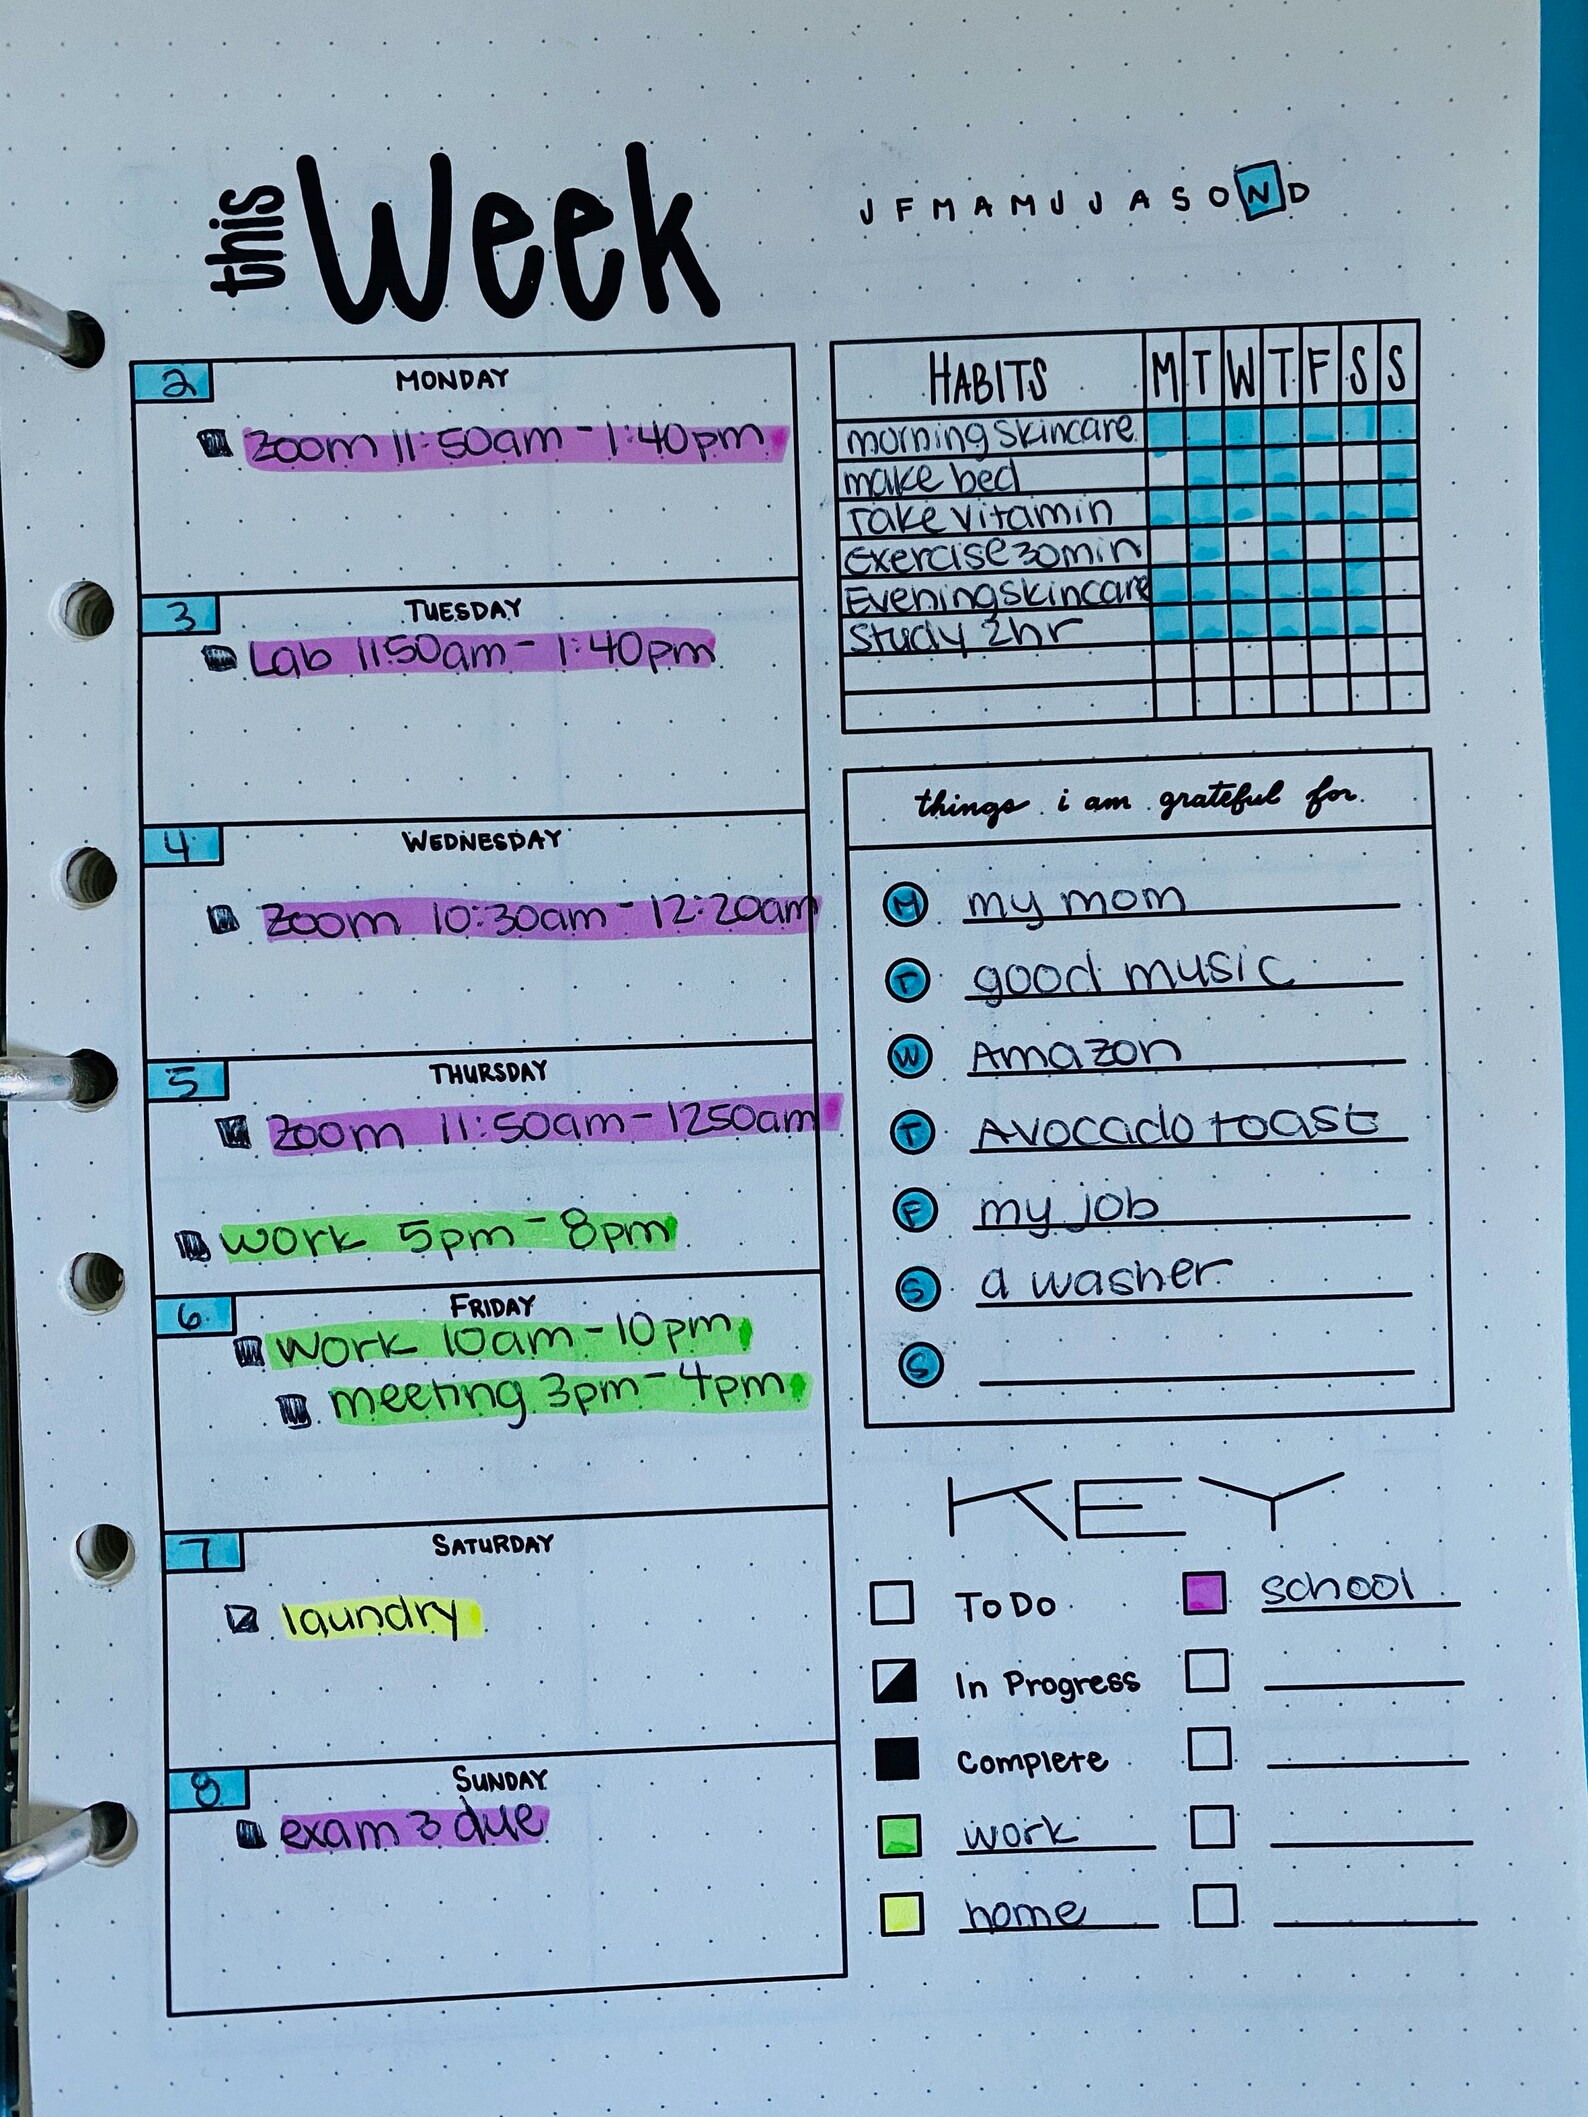 this Week
J F M A M J J A S O N D
2 MONDAY
Zoom 11:50am - 1:40pm
3 TUESDAY
Lab 1150am - 1:40pm
4 WEDNESDAY
Zoom 10:30am - 12:20am
5 THURSDAY
Zoom 11:50am - 1250am
work 5pm - 8pm
6 FRIDAY
work 10am - 10pm
meeting 3pm - 4pm
7 SATURDAY
laundry
8 SUNDAY
exam 3 due
HABITS M T W T F S S
morning skincare
make bed
Take vitamin
Exercise 30min
Evening skincare
Study 2hr
things i am grateful for
M my mom
T good music
W Amazon
T Avocado toast
F my job
S a washer
S
KEY
To Do
school
In Progress
Complete
work
home